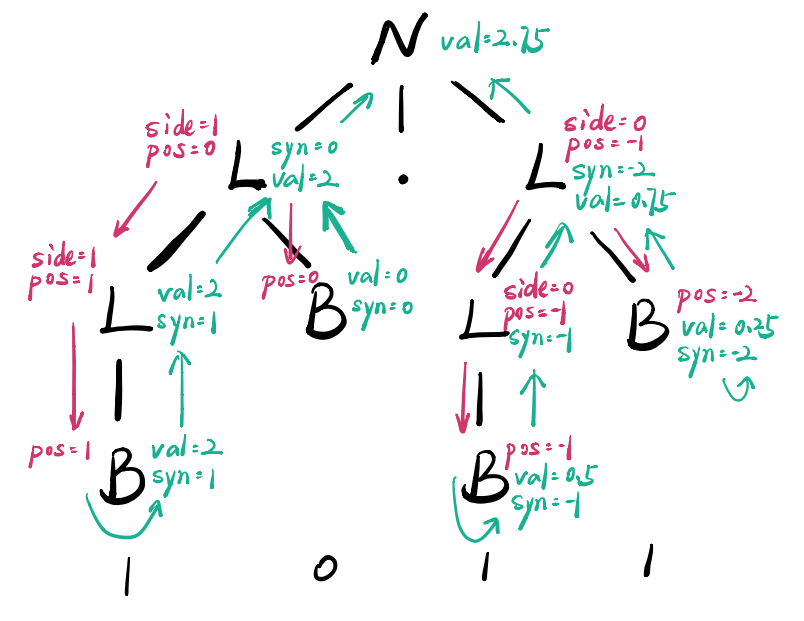 N val=2.75
side=1
pos=0
L
syn=0
val=2
.
side=0
pos=-1
L
syn=-2
val=0.75
side=1
pos=1
L
val=2
syn=1
pos=0
B
val=0
syn=0
L
side=0
pos=-1
syn=-1
B
pos=-2
val=0.25
syn=-2
pos=1
B
val=2
syn=1
B
pos=-1
val=0.5
syn=-1
1 0 1 1